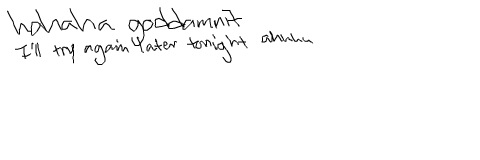 hahaha goddamnit
I'll try again later tonight ahuhu